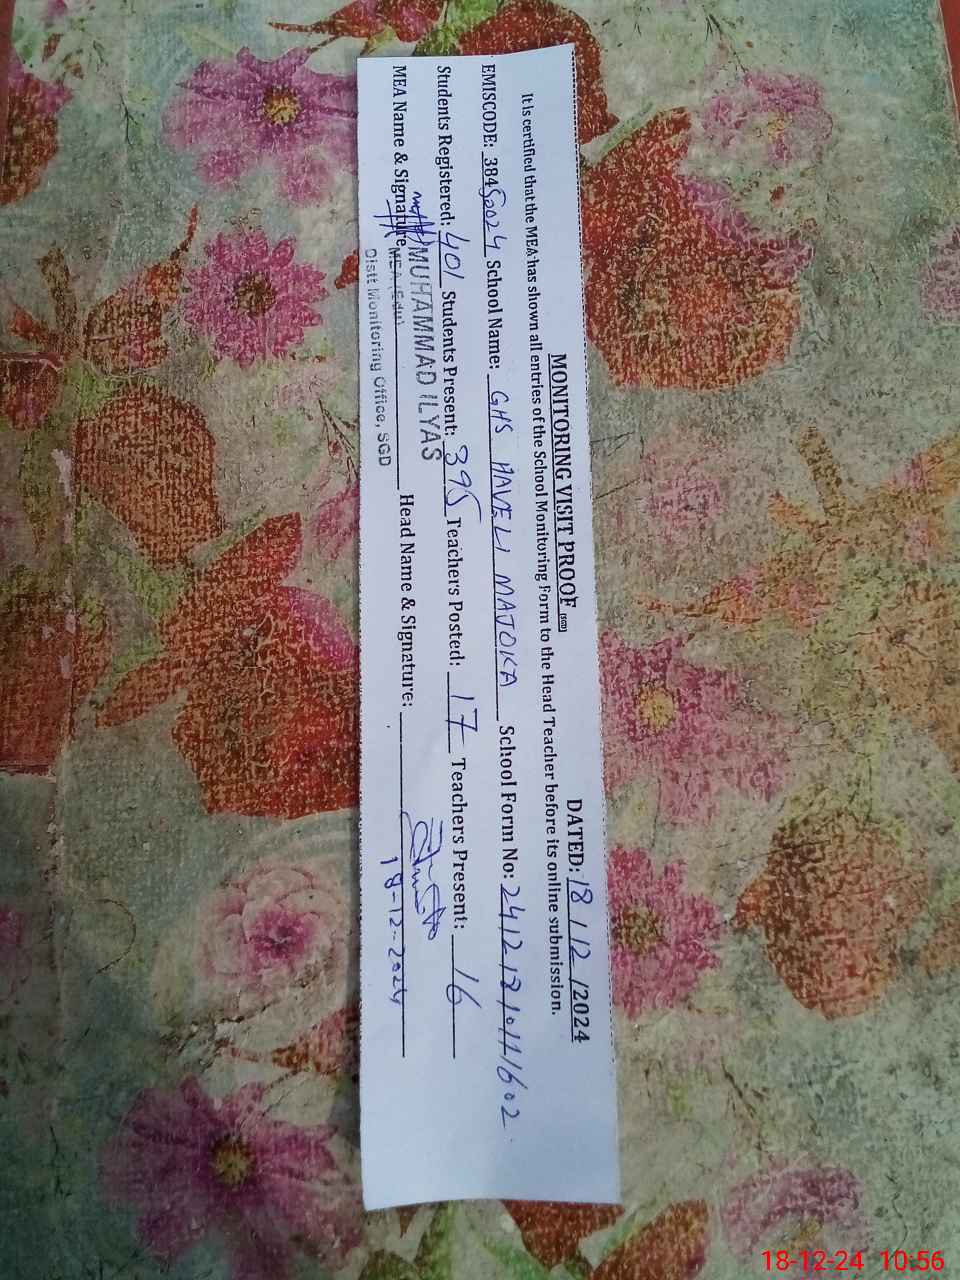 MONITORING VISIT PROOF (SGD) DATED: 18 / 12 /2024
It is certified that the MEA has shown all entries of the School Monitoring Form to the Head Teacher before its online submission.
EMISCODE: 38452024 School Name: GHS HAVELI MAJOKA School Form No:
Students Registered: 401 Students Present: 395 Teachers Posted: 17 Teachers Present: 16
MUHAMMAD ILYAS
MEA Name & Signature Head Name & Signature:
MEA (Edu) 18-12-2024
Distt Monitoring Office, SGD
18-12-24 10:56